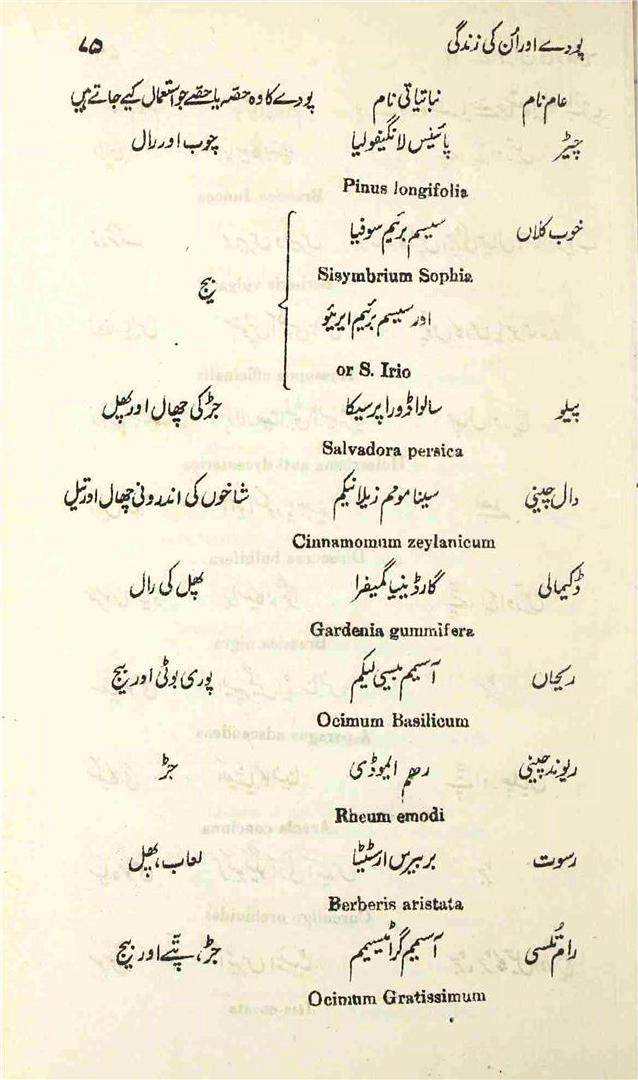 پودے اور اُن کی زندگی ۷۵
عام نام نباتیاتی نام پودے کا وہ حصّہ یا حصّے جو استعمال کیے جاتے ہیں
چیڑ پائینس لانگیفولیا چوب اور رال
Pinus longifolia
خوب کلاں سیسم برئیم سوفیا
Sisymbrium Sophia
بیج
اور سیسم برئیم ایریئو
or S. Irio
پیلو سالواڈورا پرسیکا جڑ کی چھال اور پھل
Salvadora persica
دال چینی سینا موحم زیلانیکم شاخوں کی اندرونی چھال اور تیل
Cinnamomum zeylanicum
ڈکیمالی گارڈینیا گمیفرا پھل کی رال
Gardenia gummifera
ریحاں آسیم بیسی لیکم پوری بوٹی اور بیج
Ocimum Basilicum
ریوند چینی رحم ایموڈی جڑ
Rheum emodi
رسوت بربیرس ارسٹیٹا لعاب، پھل
Berberis aristata
رام تُلسی آسیم گراٹیسیمم جڑ، پتّے اور بیج
Ocimum Gratissimum